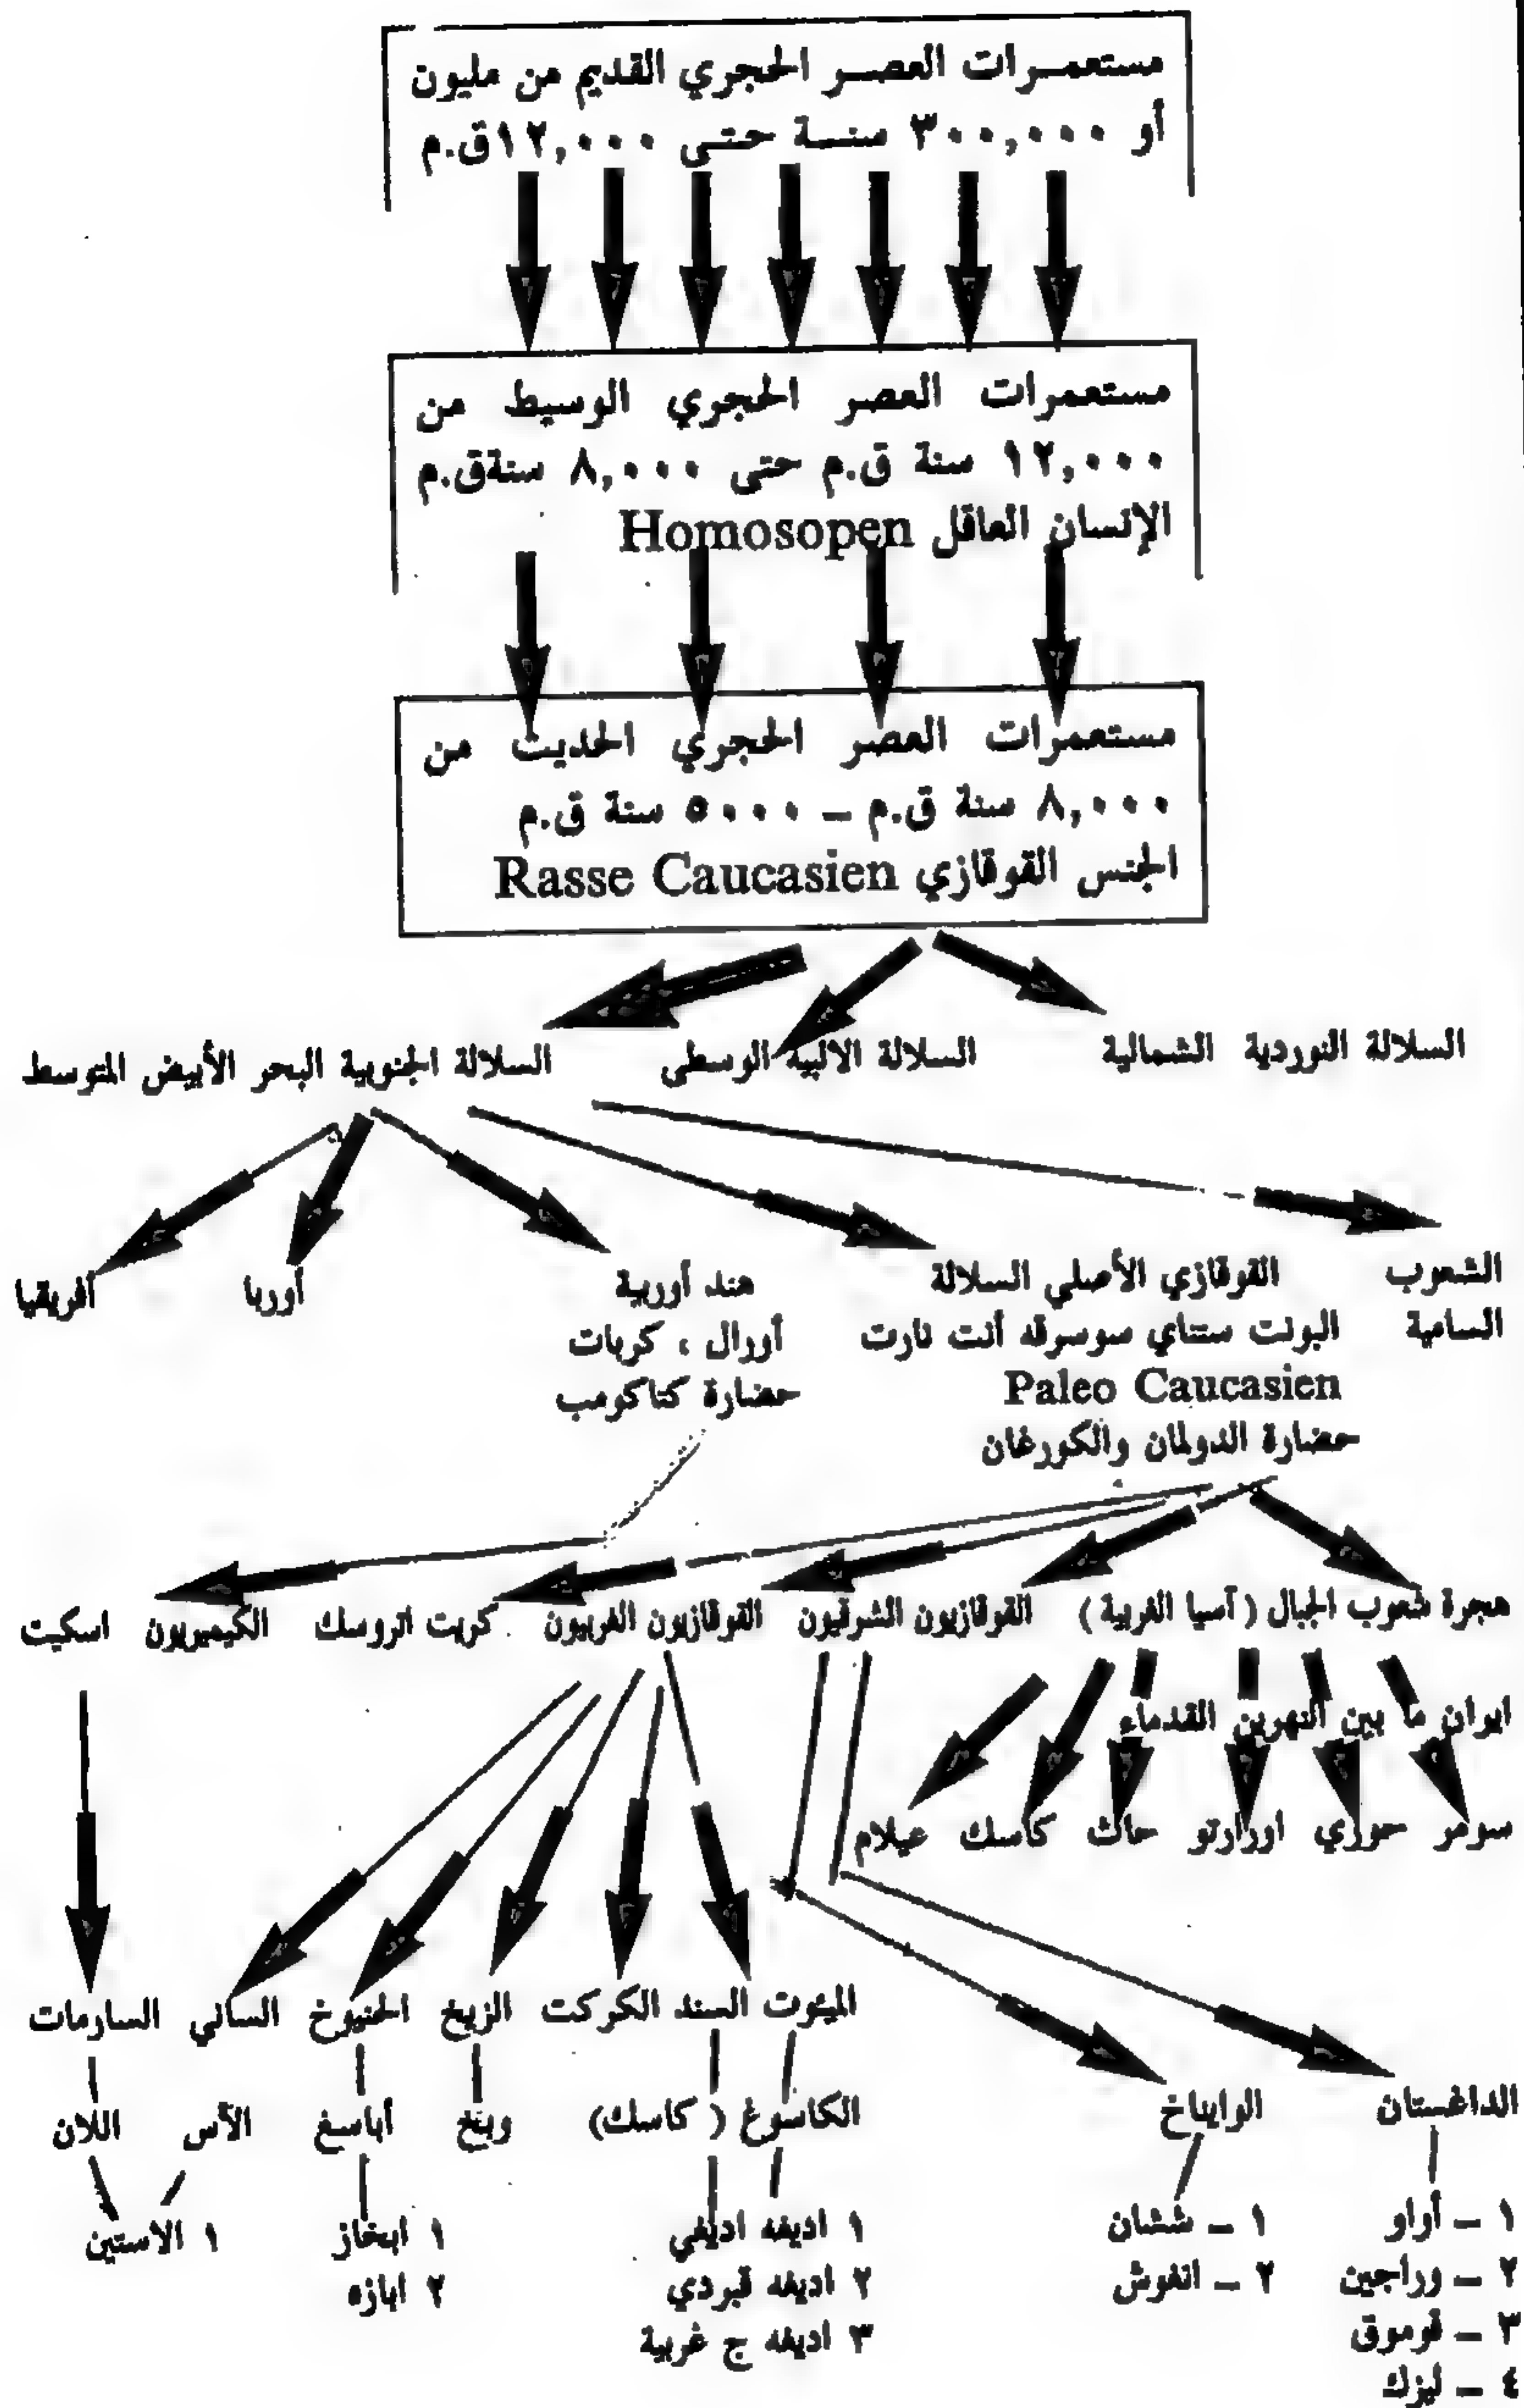 مستعمـرات العصـر الحجري القديم من مليون
أو ٣٠٠,٠٠٠ سنـة حتـى ١٢,٠٠٠ق.م
مستعمرات العصر الحجري الوسيط من
١٢,٠٠٠ سنة ق.م حتى ٨,٠٠٠ سنةق.م
الإنسان العاقل Homosopen
مستعمرات العصر الحجري الحديث من
٨,٠٠٠ سنة ق.م – ٥٠٠٠ سنة ق.م
الجنس القوقازي Rasse Caucasien
السلالة النوردية الشمالية
السلالة الالبيه الوسطى
السلالة الجنوبية البحر الأبيض المتوسط
الشعوب
السامية
القوقازي الأصلي السلالة
البونت ستناي سوسرقه أنت نارت
Paleo Caucasien
حضارة الدولمان والكورغان
هند أوربية
أورال ، كربات
حضارة كتاكومب
أوربا
أفريقيا
هجرة شعوب الجبال ( آسيا الغربية )
القوقازيون الشرقيون
القوقازيون الغربيون
كريت اتروسك
الكيميريون
اسكيت
ايران ما بين النهرين القدماء
سومر حوري اورارتو حاث كاسك عيلام
الميئوت السند الكركت الزيخ الحنيوخ الساني السارمات
الداغستان
الوايناخ
الكاسوغ ( كاسك )
وبيخ
أباسغ
الآس
اللان
١ – أوراو
٢ – وراجين
٣ – قوموق
٤ – ليزك
١ – ششان
٢ – انغوش
١ اديغه اديغي
٢ اديغه قبردي
٣ اديغه ج غربية
١ ابخاز
٢ ابازه
١ الاستين